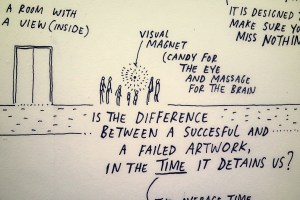 A ROOM WITH
A VIEW (INSIDE)
VISUAL
MAGNET
(CANDY FOR
THE EYE
AND MASSAGE
FOR THE BRAIN
IT IS DESIGNED T
MAKE SURE YO
MISS NOTHIN
IS THE DIFFERENCE
BETWEEN A SUCCESFUL AND
A FAILED ARTWORK,
IN THE TIME IT DETAINS US?
AVERAGE TIME